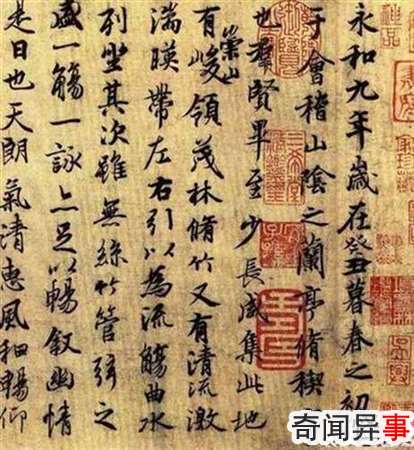 永和九年歲在癸丑暮春之初
于會稽山陰之蘭亭脩禊
也羣賢畢至少長咸集此地
有崇山峻領茂林脩竹又有清流激
湍暎帶左右引以為流觴曲水
列坐其次雖無絲竹管弦之
盛一觴一詠亦足以暢敘幽情
是日也天朗氣清惠風和暢仰
奇闻异事